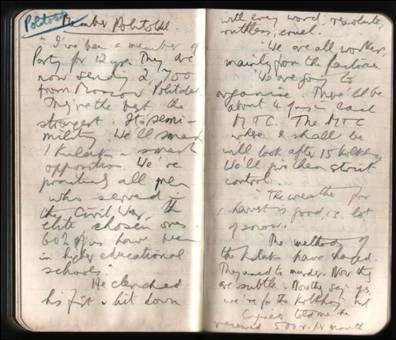 Politodel
Member Politotdel.
I've been a member of
Party for 12 yrs. They are
now sending 2,700
from Moscow Politotdel
They're the best the
strongest. It's semi-
military. We'll smash
1 Kulaks & smash
opposition. We're
all men
who served in
the Civil War, the
elite chosen ones.
60% of us have been
in higher educational
schools."
He clenched
his fist & hit down
with every word, resolute,
ruthless, cruel.
"We are all workers,
mainly from the factories
"We are going to
organise. There'll be
about 4 guys in each
MTC. The MTC
where I shall be
will look after 15 kolkhoz
We'll give them strict
control.
"The weather for
1 harvest is good, is lot
of snow.
"The methods of
the kulaks have changed.
They used to murder. Now they
are subtle. Now they say: yes,
we're for the kolkhoz, but
told me he
received 500 r. a month